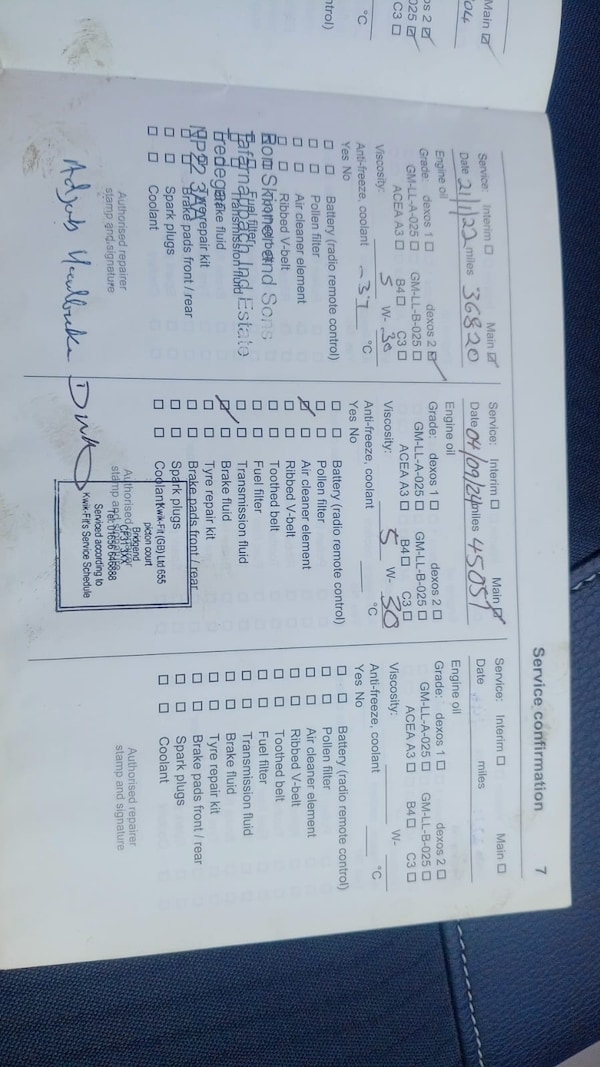 Main ☑
dexos 2 ☑
C3 ☐
°C
Service confirmation 7
Service: Interim ☐ Main ☑
Date 21/1/22 miles 36820
Engine oil
Grade: dexos 1 ☐ dexos 2 ☑
GM-LL-A-025 ☐ GM-LL-B-025 ☐
ACEA A3 ☐ B4 ☐ C3 ☐
Viscosity: 5 W- 30
Anti-freeze, coolant -37 °C
Yes No
☐ ☐ Battery (radio remote control)
☐ ☐ Pollen filter
☐ ☐ Air cleaner element
☐ ☐ Ribbed V-belt
Ron Skinner and Sons
Fuel filter
Transmission fluid
Tafarnaubach Ind Estate
Brake fluid
Tredegar
Tyre repair kit
NP22 3XX
Brake pads front / rear
☐ ☐ Spark plugs
☐ ☐ Coolant
Authorised repairer
stamp and signature
Service: Interim ☐ Main ☑
Date 04/09/24 miles 45057
Engine oil
Grade: dexos 1 ☐ dexos 2 ☐
GM-LL-A-025 ☐ GM-LL-B-025 ☐
ACEA A3 ☐ B4 ☐ C3 ☐
Viscosity: 5 W- 30
Anti-freeze, coolant °C
Yes No
☐ ☐ Battery (radio remote control)
☐ ☐ Pollen filter
☑ ☐ Air cleaner element
☐ ☐ Ribbed V-belt
☐ ☐ Toothed belt
☐ ☐ Fuel filter
☐ ☐ Transmission fluid
☑ ☐ Brake fluid
☐ ☐ Tyre repair kit
☐ ☐ Brake pads front / rear
☐ ☐ Spark plugs
☐ ☐ Coolant
Kwik-Fit (GB) Ltd 655
picton court
Bridgend
Authorised
stamp and
Serviced according to
Kwik-Fit's Service Schedule
Service: Interim ☐ Main ☐
Date miles
Engine oil
Grade: dexos 1 ☐ dexos 2 ☐
GM-LL-A-025 ☐ GM-LL-B-025 ☐
ACEA A3 ☐ B4 ☐ C3 ☐
Viscosity: W-
Anti-freeze, coolant °C
Yes No
☐ ☐ Battery (radio remote control)
☐ ☐ Pollen filter
☐ ☐ Air cleaner element
☐ ☐ Ribbed V-belt
☐ ☐ Toothed belt
☐ ☐ Fuel filter
☐ ☐ Transmission fluid
☐ ☐ Brake fluid
☐ ☐ Tyre repair kit
☐ ☐ Brake pads front / rear
☐ ☐ Spark plugs
☐ ☐ Coolant
Authorised repairer
stamp and signature